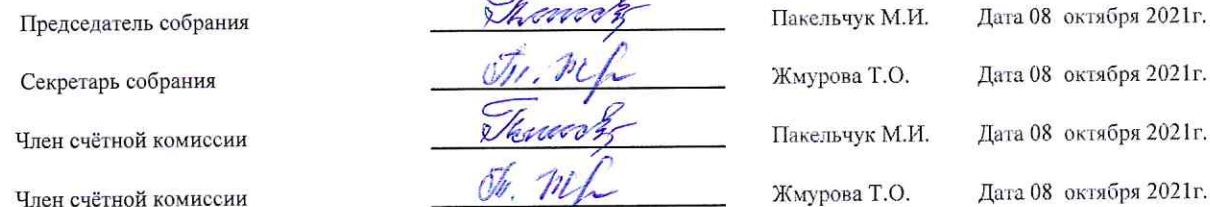 Председатель собрания Пакельчук М.И. Дата 08 октября 2021г.
Секретарь собрания Жмурова Т.О. Дата 08 октября 2021г.
Член счётной комиссии Пакельчук М.И. Дата 08 октября 2021г.
Член счётной комиссии Жмурова Т.О. Дата 08 октября 2021г.